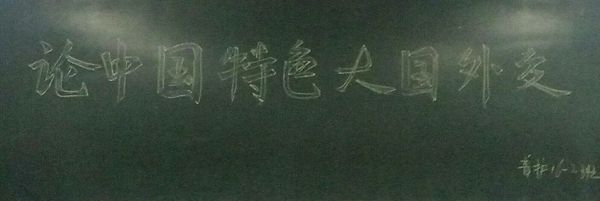 论中国特色大国外交
普林16-2班